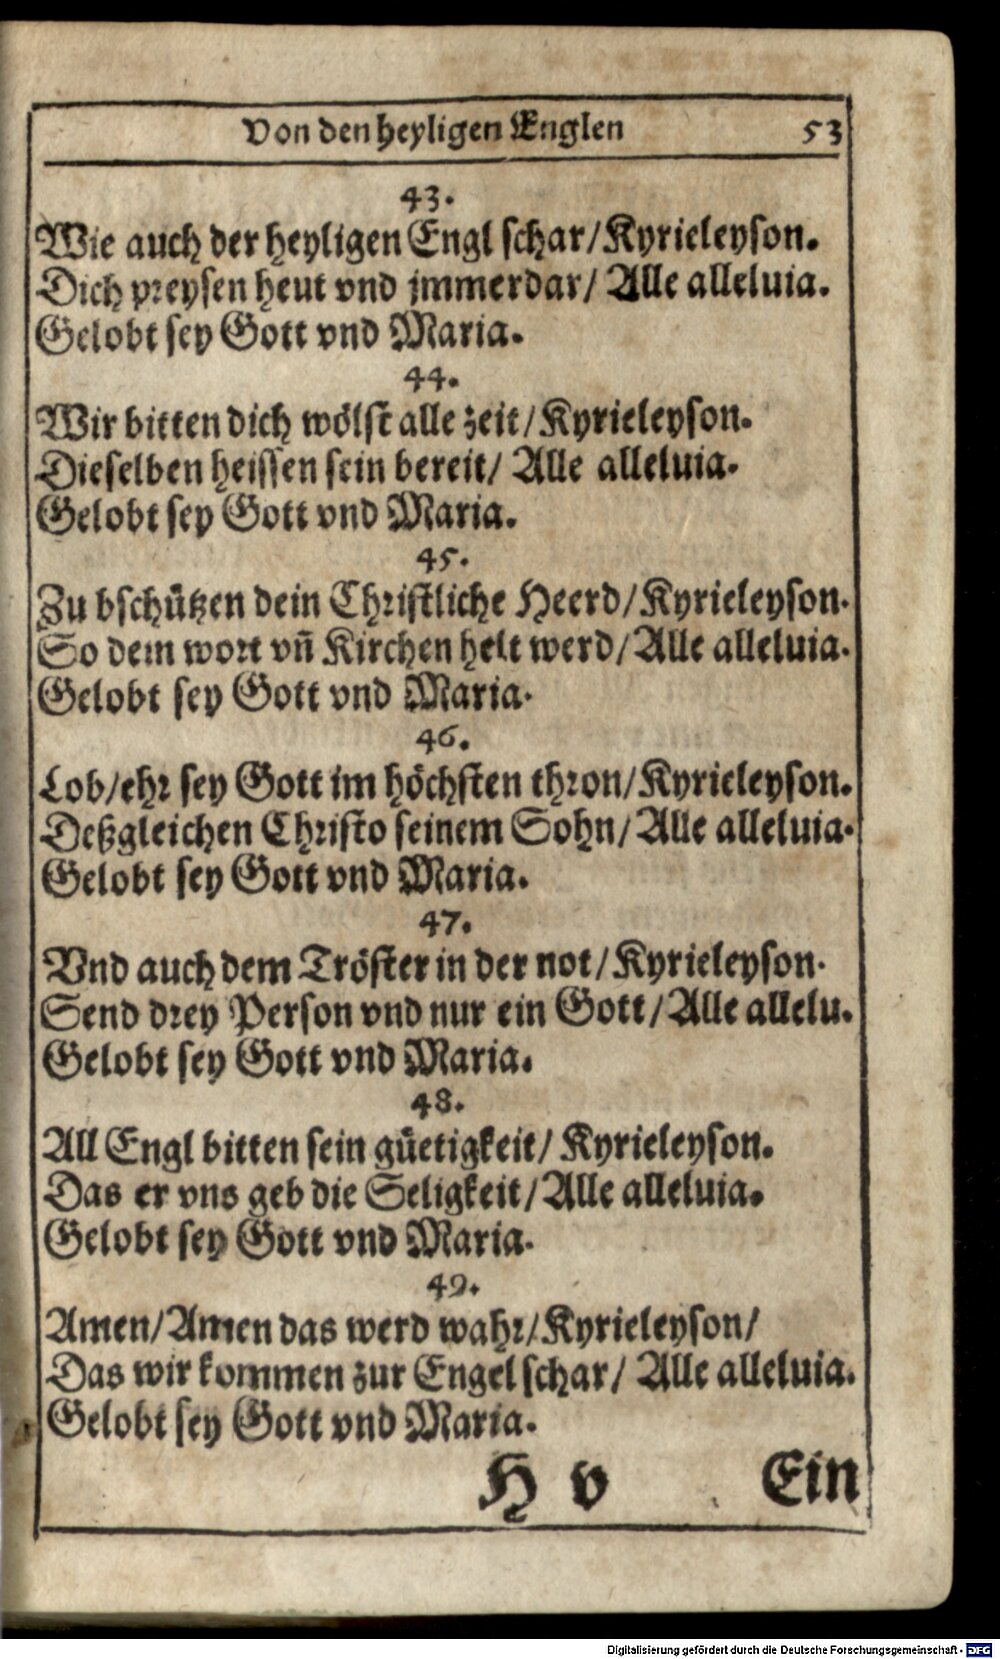 Von den heyligen Englen 53
43.
Wie auch der heyligen Engl schar/Kyrieleyson.
Dich preysen heut vnd jmmerdar/ Alle alleluia.
Gelobt sey Gott vnd Maria.
44.
Wir bitten dich wölst alle zeit/Kyrieleyson.
Dieselben heissen sein bereit/ Alle alleluia.
Gelobt sey Gott vnd Maria.
45.
Zu bschützen dein Christliche Heerd/Kyrieleyson.
So dem wort vñ Kirchen helt werd/Alle alleluia.
Gelobt sey Gott vnd Maria.
46.
Lob/ehr sey Gott im höchsten thron/Kyrieleyson.
Deßgleichen Christo seinem Sohn/Alle alleluia.
Gelobt sey Gott vnd Maria.
47.
Vnd auch dem Tröster in der not/Kyrieleyson.
Send drey Person vnd nur ein Gott/Alle allelu.
Gelobt sey Gott vnd Maria.
48.
All Engl bitten sein güetigkeit/ Kyrieleyson.
Das er vns geb die Seligkeit/Alle alleluia.
Gelobt sey Gott vnd Maria.
49.
Amen/Amen das werd wahr/Kyrieleyson/
Das wir kommen zur Engel schar/ Alle alleluia.
Gelobt sey Gott vnd Maria.
H v Ein
Digitalisierung gefördert durch die Deutsche Forschungsgemeinschaft - DFG